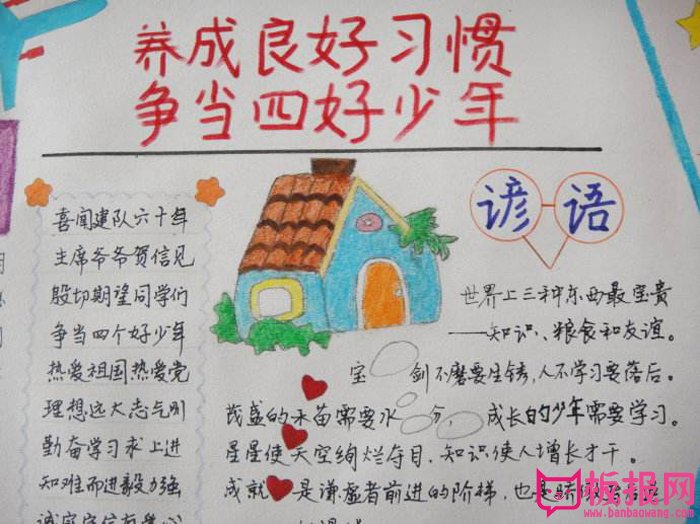 养成良好习惯
争当四好少年
喜闻建队六十年
主席爷爷贺信见
殷切期望同学们
争当四个好少年
热爱祖国热爱党
理想远大志气刚
勤奋学习求上进
知难而进毅力强
谚语
世界上三种东西最宝贵
——知识、粮食和友谊。
宝剑不磨要生锈,人不学习要落后。
茂盛的禾苗需要水分,成长的少年需要学习。
星星使天空绚烂夺目,知识使人增长才干。
成就是谦虚者前进的阶梯,也是
板报网
www.banbaowang.com